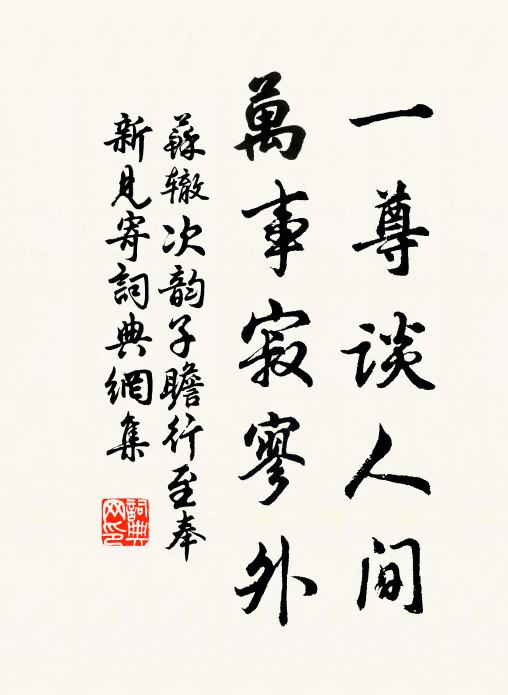 一尊谈人间
萬事寂寥外
蘇辙次韵子瞻行至奉
新見寄詞典網集
詞典
网印